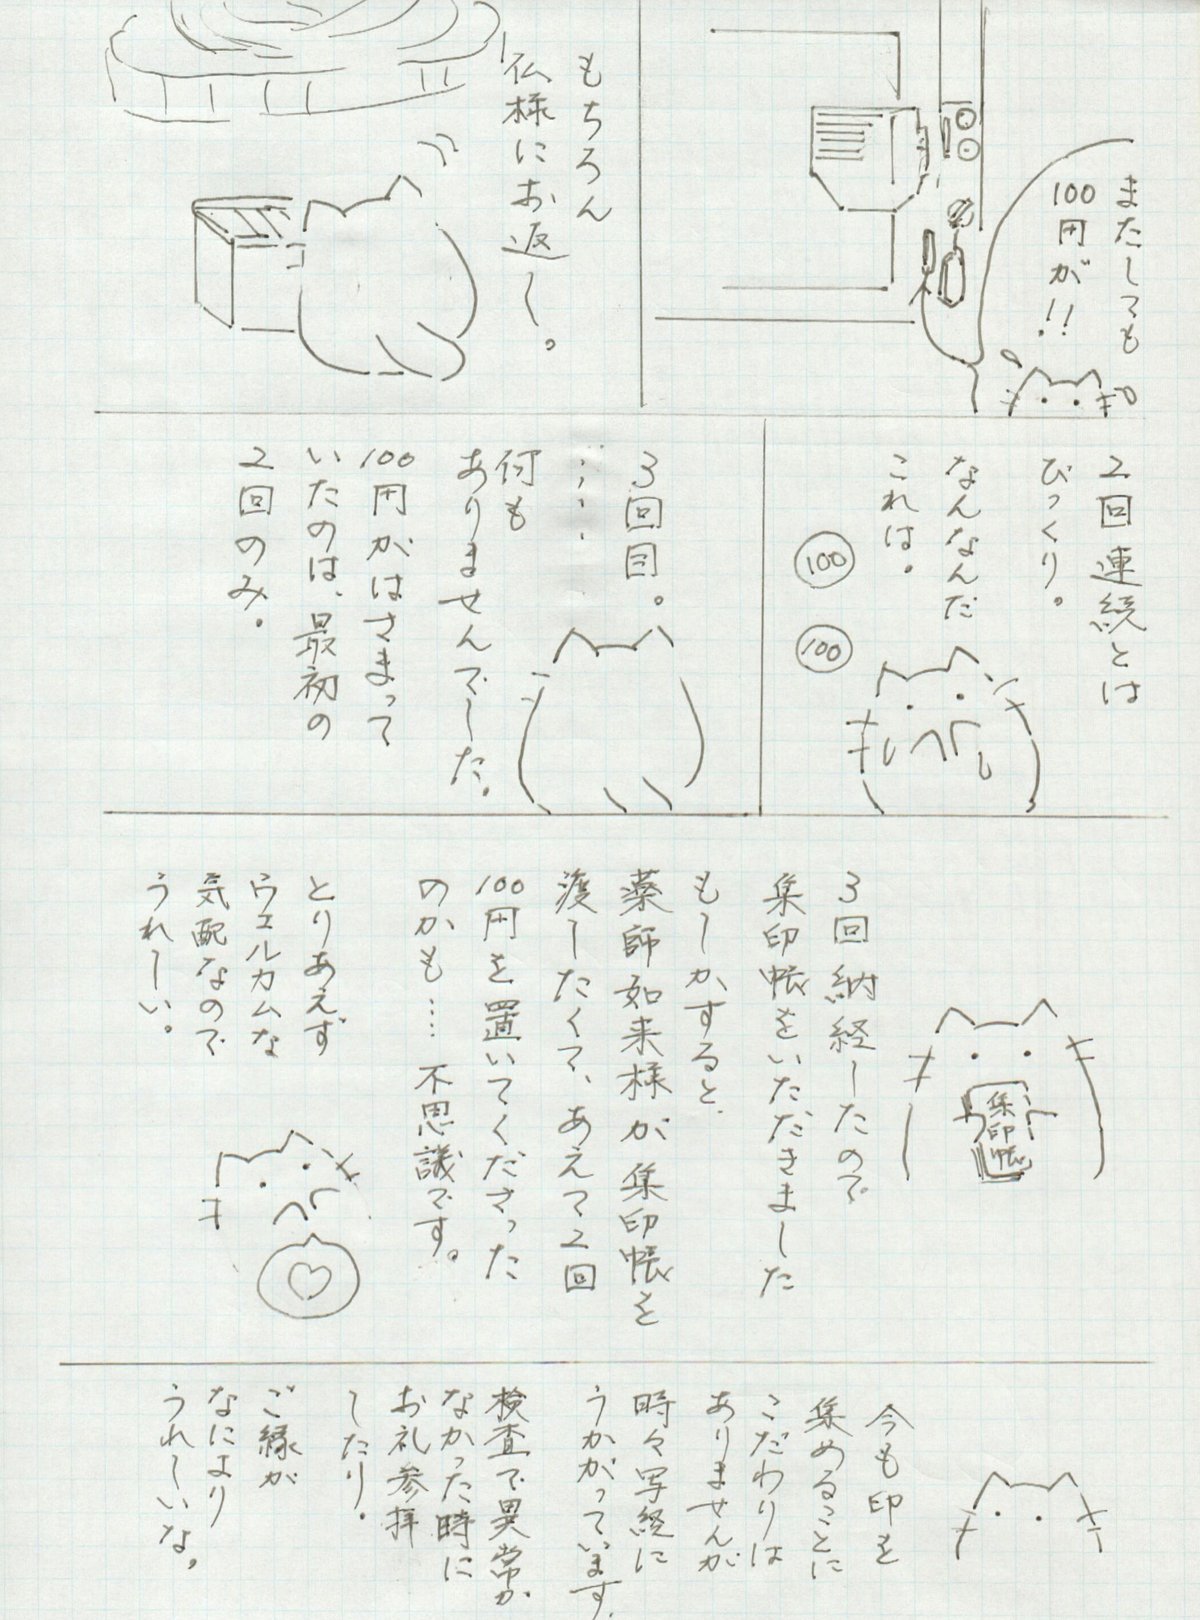 またしても
100円が!!
もちろん
仏様にお返し。
2回連続とは
びっくり。
なんなんだ
これは。
100
100
3回目。
……
何も
ありませんでした。
100円がはさまって
いたのは、最初の
2回のみ。
集印帳
3回納経したので
集印帳をいただきました
もしかすると、
薬師如来様が集印帳を
渡したくて、あえて2回
100円を置いてくださった
のかも…不思議です。
とりあえず
ウェルカムな
気配なので
うれしい。
今も印を
集めることに
こだわりは
ありませんが
時々写経に
うかがっています。
検査で異常が
なかった時に
お礼参拝
したり。
ご縁が
なにより
うれしいな。